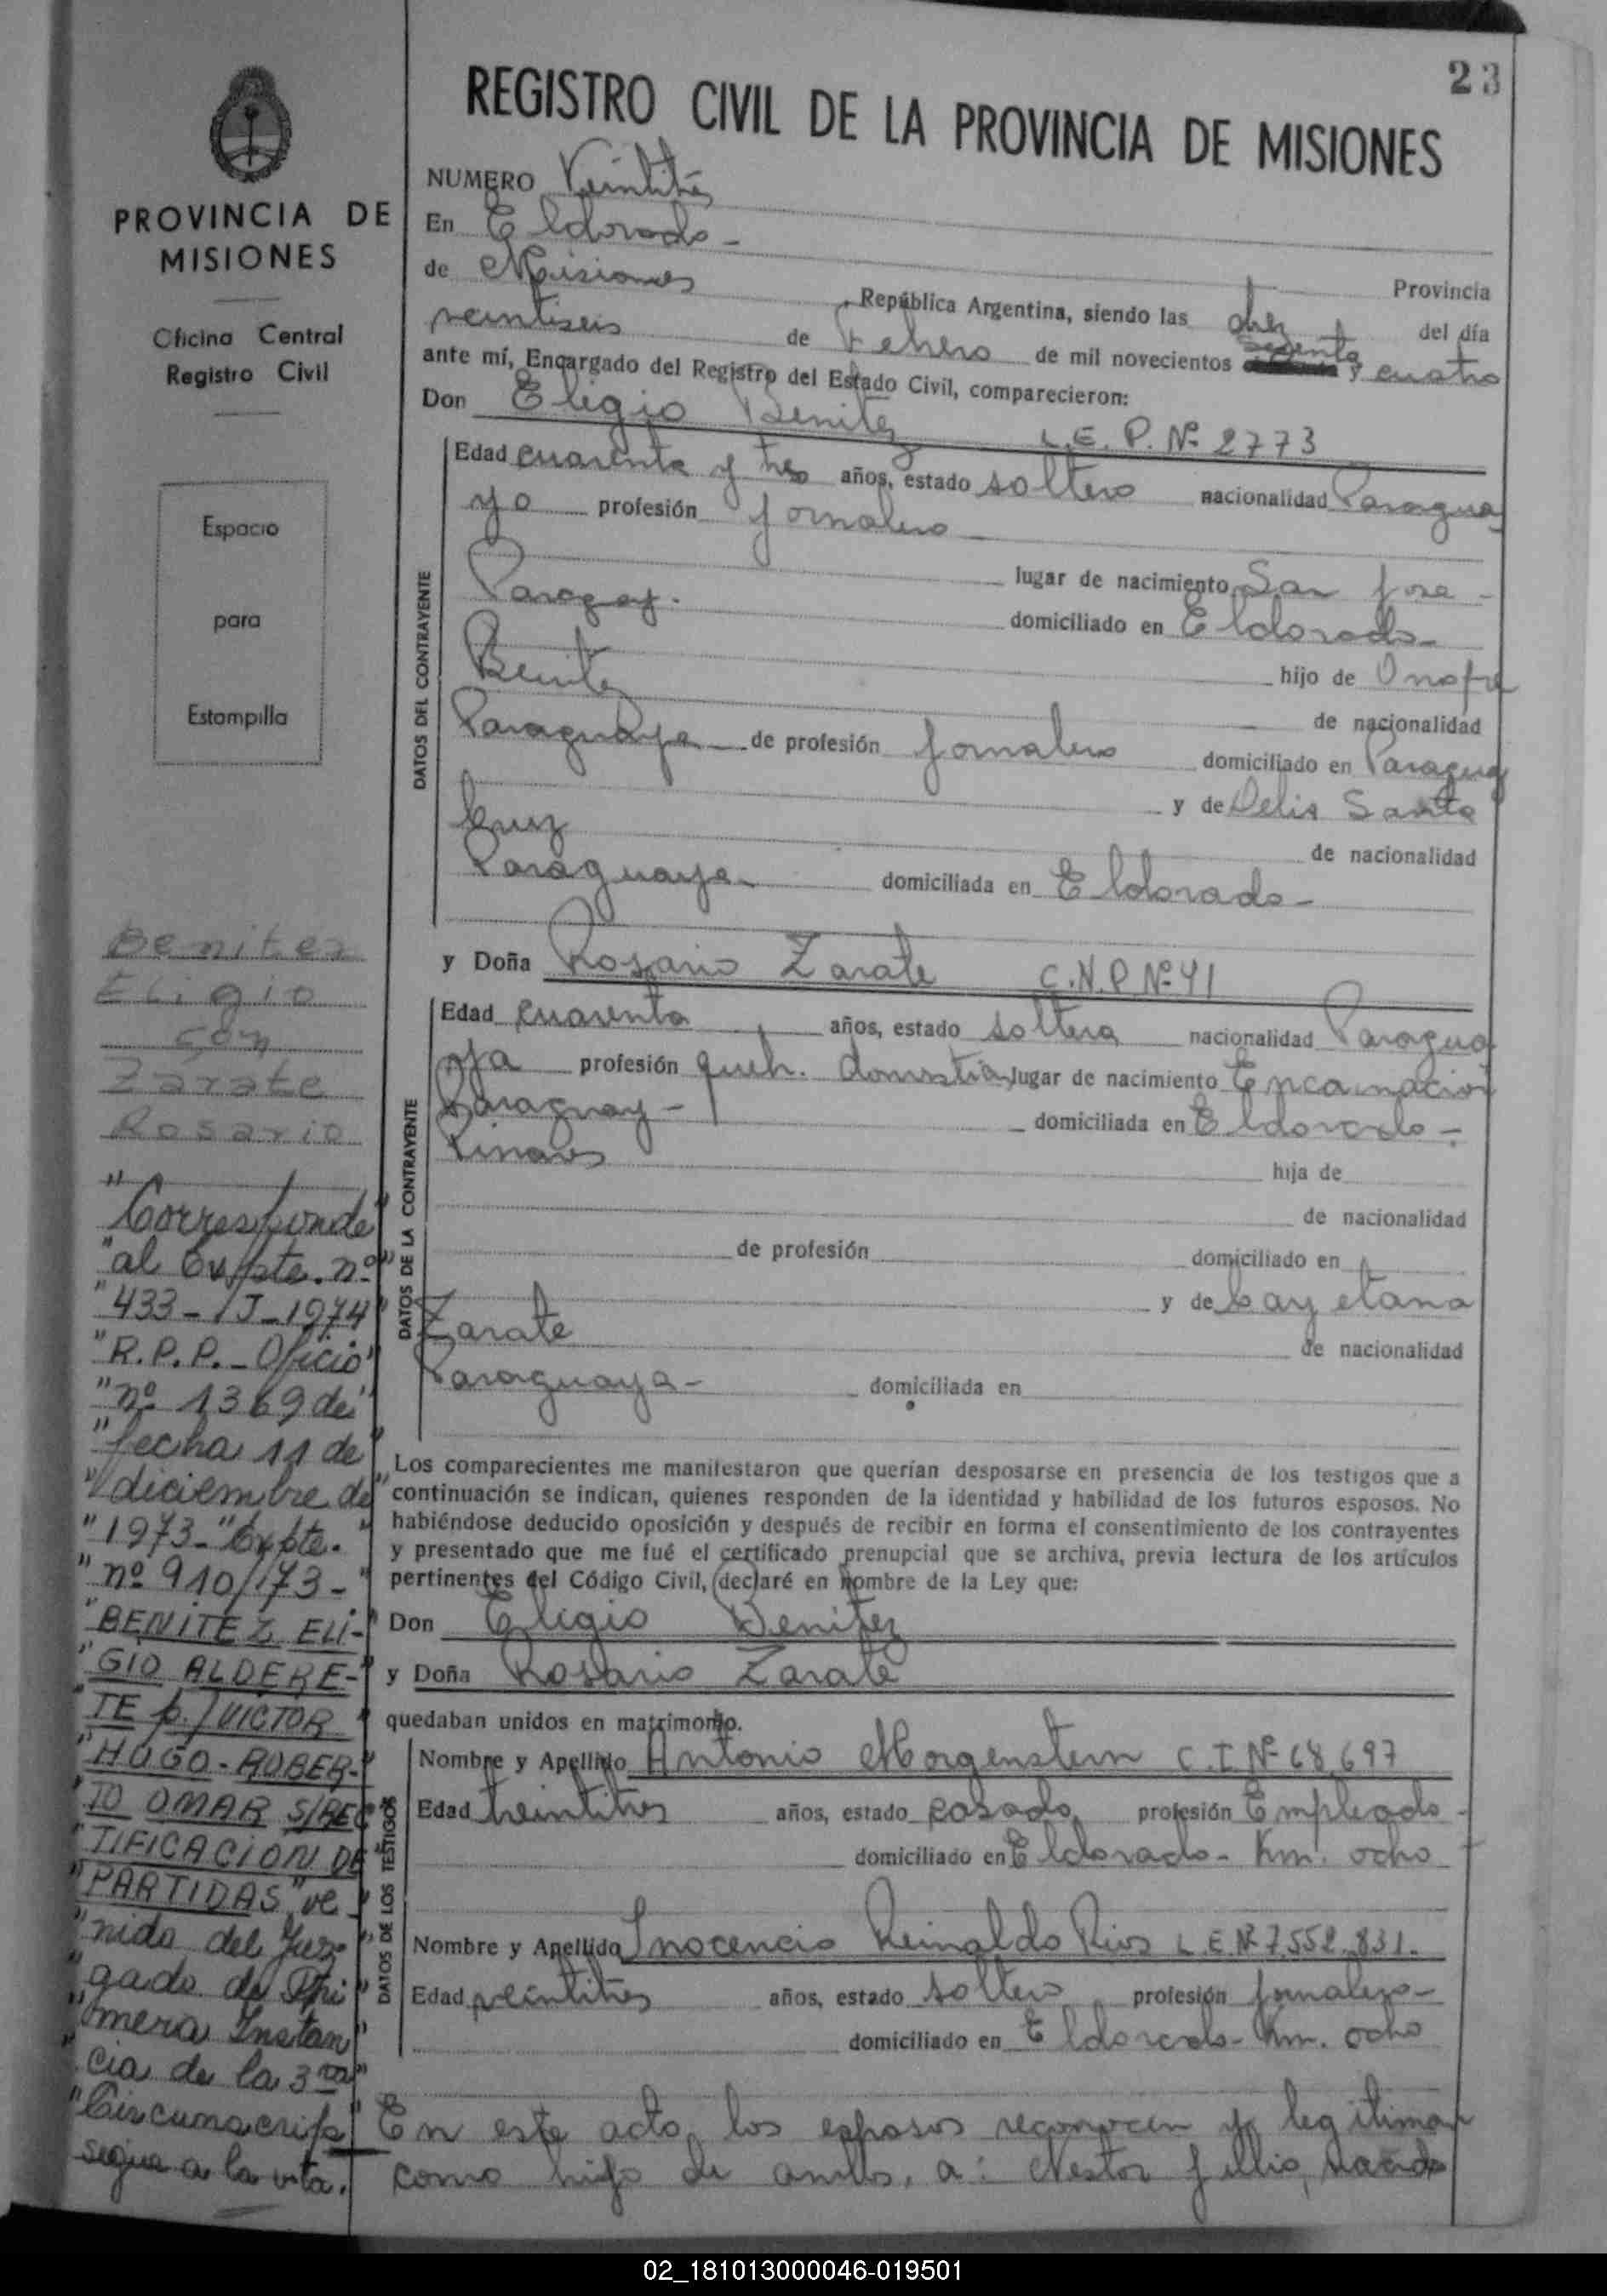 23
REGISTRO CIVIL DE LA PROVINCIA DE MISIONES
PROVINCIA DE
MISIONES
Oficina Central
Registro Civil
Espacio
para
Estampilla
Benitez
Eligio
con
Zárate
Rosario
"Corresponde"
"al Expte. nº"
"433-1J-1974"
"R.P.P.-Oficio"
"nº 1369 de"
"fecha 11 de"
"diciembre de"
"1973-"Expte."
"nº 910/73-"
"BENITEZ ELI-"
"GIO ALDERE-"
"TE p./VICTOR"
"HUGO-ROBER-"
"TO OMAR S/REC"
"TIFICACION DE"
"PARTIDAS" ve-"
"nido del Juz-"
"gado de Pri"
"mera Instan"
"cia de la 3ra"
"Circunscrip
sigue a la vta.
NUMERO Veintitrés
En Eldorado- Provincia
de Misiones, República Argentina, siendo las diez del día
veintiseis de Febrero de mil novecientos sesenta y cuatro
ante mí, Encargado del Registro del Estado Civil, comparecieron:
Don Eligio Benitez L.E.P. Nº 2773
DATOS DEL CONTRAYENTE
Edad cuarenta y tres años, estado soltero nacionalidad Paragua
yo profesión jornalero
lugar de nacimiento San Jose-
Paraguay. domiciliado en Eldorado-
hijo de Onofre
Benitez de nacionalidad
Paraguaya de profesión jornalero domiciliado en Paraguay
y de Delis Santa
Cruz de nacionalidad
Paraguaya- domiciliada en Eldorado-
y Doña Rosario Zarate C.N.P. Nº 41
DATOS DE LA CONTRAYENTE
Edad cuarenta años, estado soltera nacionalidad Paragua
ya profesión queh. domestia lugar de nacimiento Encarnación
Paraguay- domiciliada en Eldorado-
Pinares hija de
de nacionalidad
de profesión domiciliado en
y de Cayetana
Zarate de nacionalidad
Paraguaya- domiciliada en
Los comparecientes me manifestaron que querían desposarse en presencia de los testigos que a
continuación se indican, quienes responden de la identidad y habilidad de los futuros esposos. No
habiéndose deducido oposición y después de recibir en forma el consentimiento de los contrayentes
y presentado que me fué el certificado prenupcial que se archiva, previa lectura de los artículos
pertinentes del Código Civil, declaré en nombre de la Ley que:
Don Eligio Benitez
y Doña Rosario Zarate
quedaban unidos en matrimonio.
DATOS DE LOS TESTIGOS
Nombre y Apellido Antonio Morgenstern C.I. Nº 68.697
Edad treintitres años, estado casado profesión Empleado-
domiciliado en Eldorado- Km. ocho
Nombre y Apellido Inocencio Reinaldo Rios L.E. Nº 7.552.831.
Edad veintitres años, estado soltero profesión jornalero-
domiciliado en Eldorado- Km. ocho
En este acto, los esposos reconocen y legitiman
como hijo de ambos, a: Nestor Julio, nacido
02_181013000046-019501